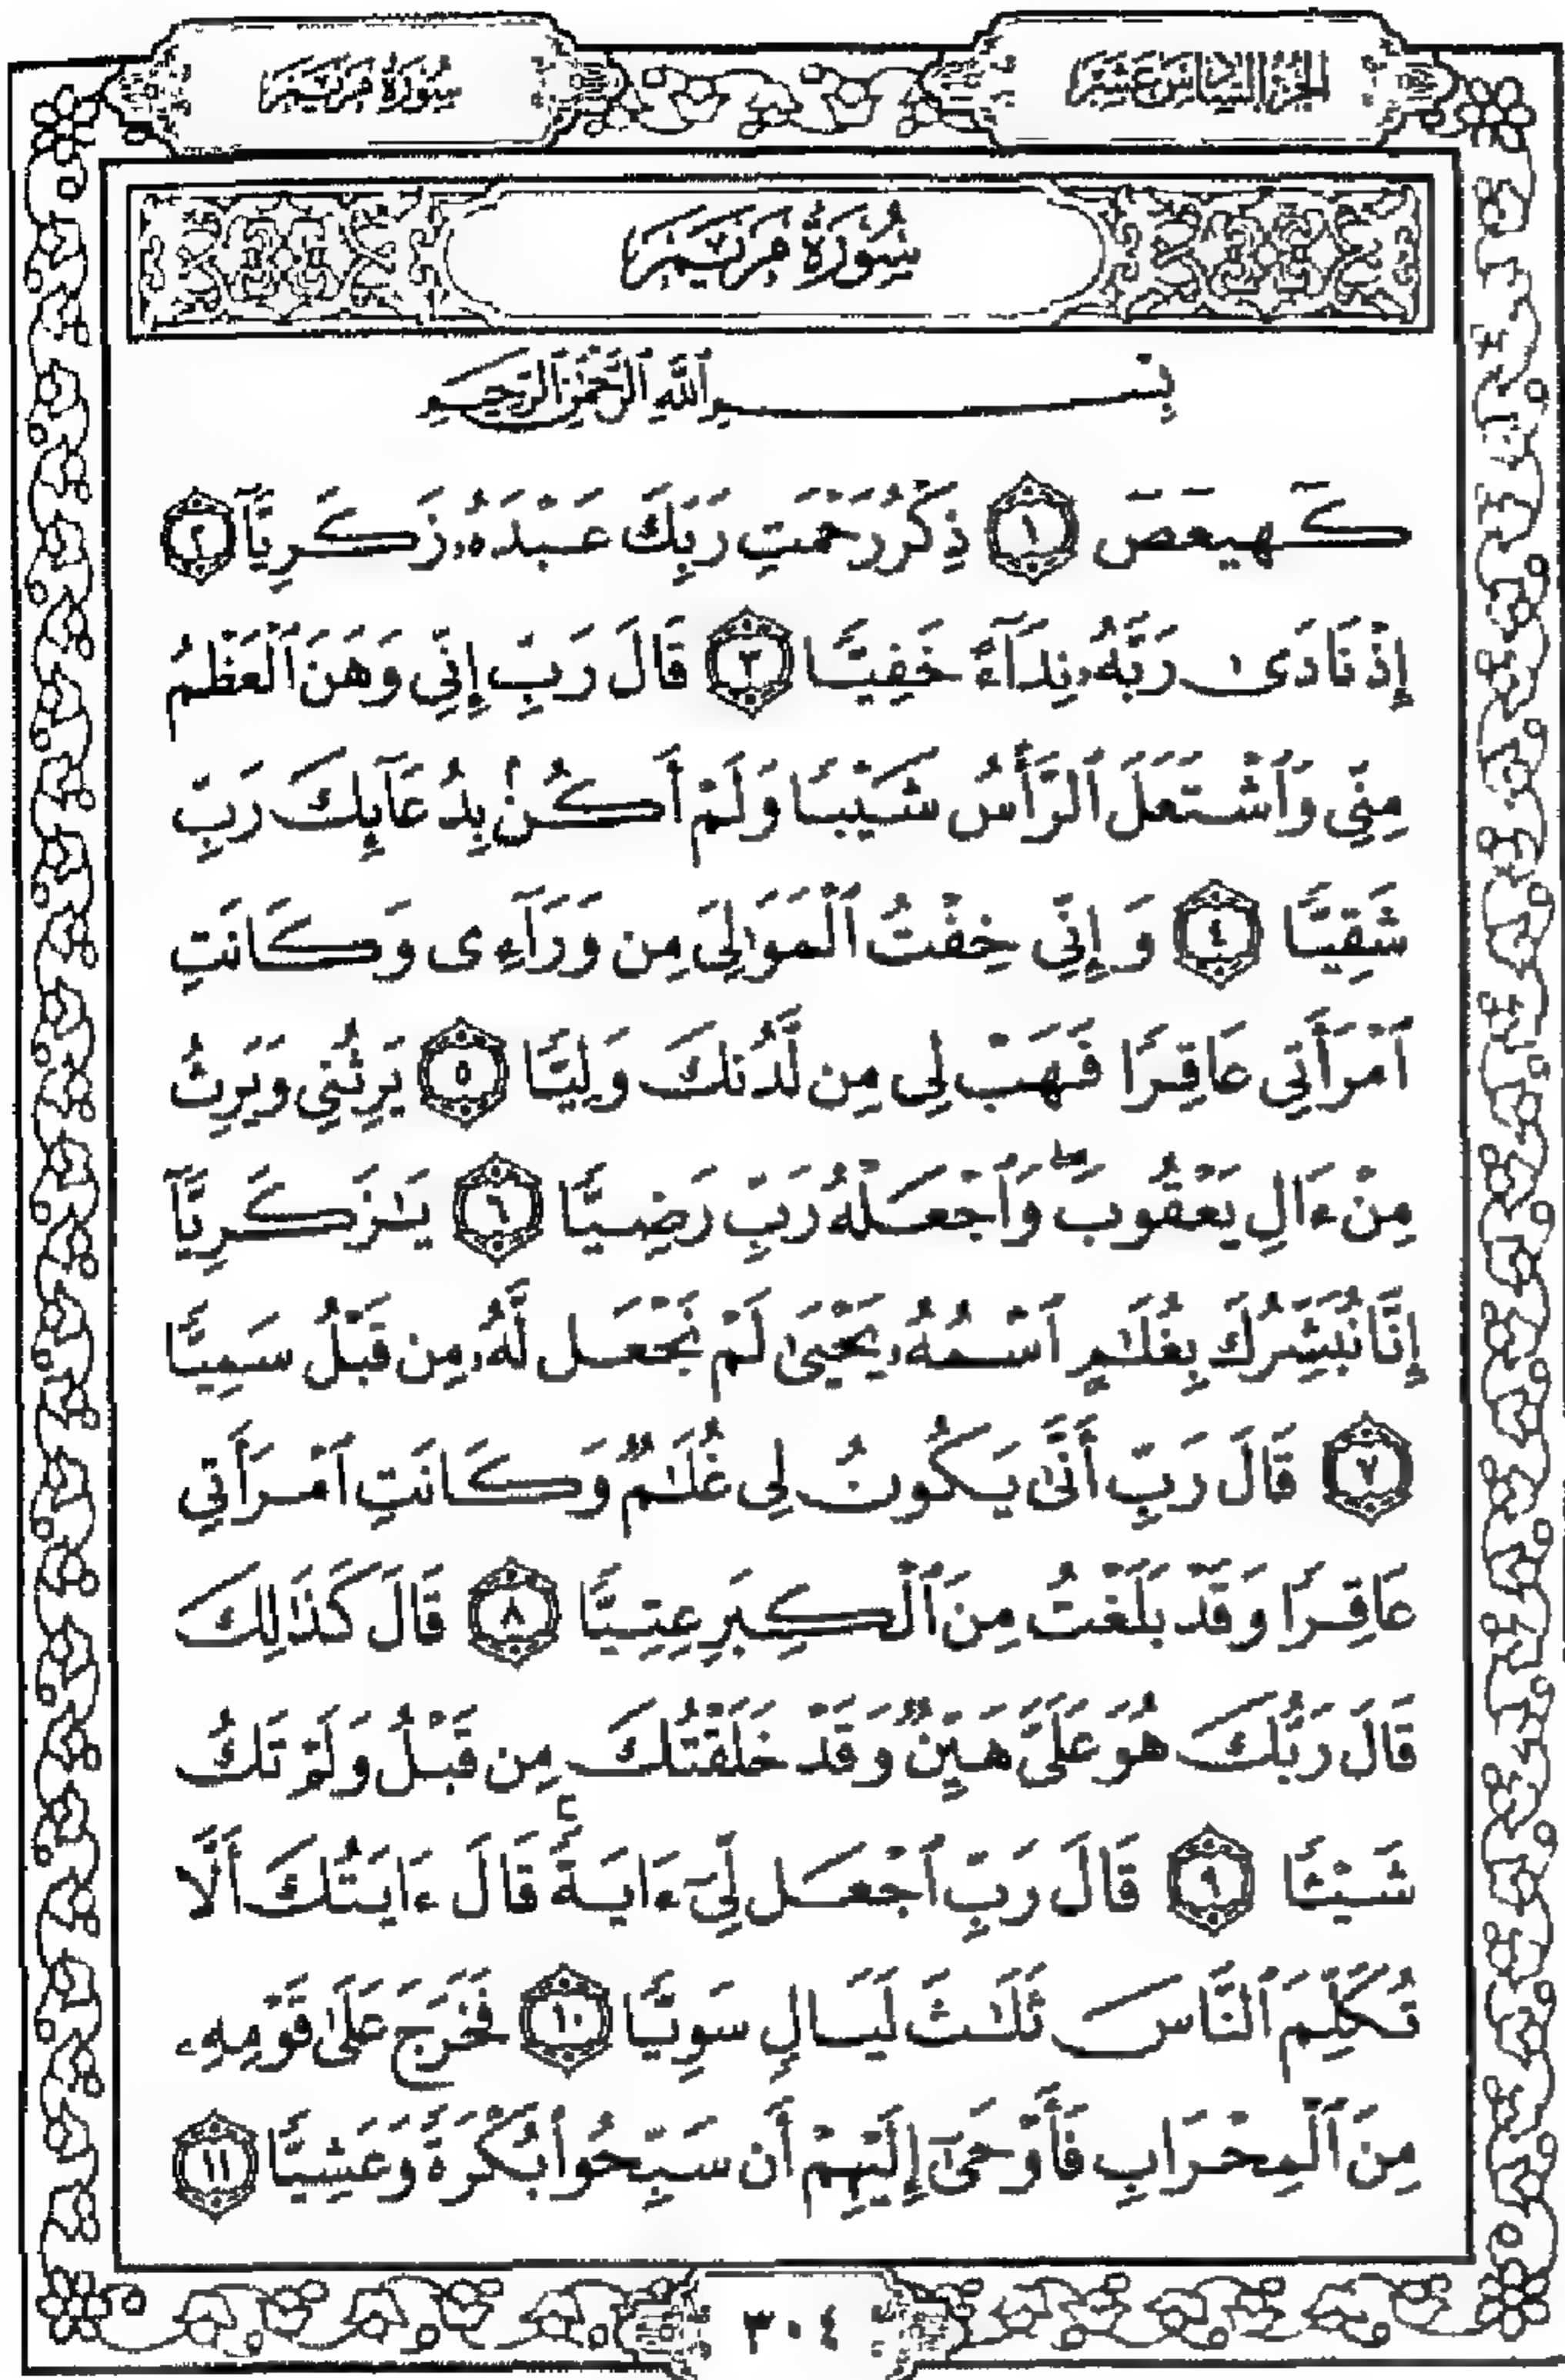 الجزء السادس عشر
سورة مريم
سُورَةُ مَرْيَمَ
بِسْمِ ٱللَّهِ ٱلرَّحْمَٰنِ ٱلرَّحِيمِ
كٓهيعٓصٓ ١ ذِكْرُ رَحْمَتِ رَبِّكَ عَبْدَهُۥ زَكَرِيَّآ ٢
إِذْ نَادَىٰ رَبَّهُۥ نِدَآءً خَفِيًّا ٣ قَالَ رَبِّ إِنِّى وَهَنَ ٱلْعَظْمُ
مِنِّى وَٱشْتَعَلَ ٱلرَّأْسُ شَيْبًا وَلَمْ أَكُنۢ بِدُعَآئِكَ رَبِّ
شَقِيًّا ٤ وَإِنِّى خِفْتُ ٱلْمَوَٰلِىَ مِن وَرَآءِى وَكَانَتِ
ٱمْرَأَتِى عَاقِرًا فَهَبْ لِى مِن لَّدُنكَ وَلِيًّا ٥ يَرِثُنِى وَيَرِثُ
مِنْ ءَالِ يَعْقُوبَ ۖ وَٱجْعَلْهُ رَبِّ رَضِيًّا ٦ يَٰزَكَرِيَّآ
إِنَّا نُبَشِّرُكَ بِغُلَٰمٍ ٱسْمُهُۥ يَحْيَىٰ لَمْ نَجْعَل لَّهُۥ مِن قَبْلُ سَمِيًّا
٧ قَالَ رَبِّ أَنَّىٰ يَكُونُ لِى غُلَٰمٌ وَكَانَتِ ٱمْرَأَتِى
عَاقِرًا وَقَدْ بَلَغْتُ مِنَ ٱلْكِبَرِ عِتِيًّا ٨ قَالَ كَذَٰلِكَ
قَالَ رَبُّكَ هُوَ عَلَىَّ هَيِّنٌ وَقَدْ خَلَقْتُكَ مِن قَبْلُ وَلَمْ تَكُ
شَيْـًٔا ٩ قَالَ رَبِّ ٱجْعَل لِّىٓ ءَايَةً ۚ قَالَ ءَايَتُكَ أَلَّا
تُكَلِّمَ ٱلنَّاسَ ثَلَٰثَ لَيَالٍ سَوِيًّا ١٠ فَخَرَجَ عَلَىٰ قَوْمِهِۦ
مِنَ ٱلْمِحْرَابِ فَأَوْحَىٰٓ إِلَيْهِمْ أَن سَبِّحُوا۟ بُكْرَةً وَعَشِيًّا ١١
٣٠٤